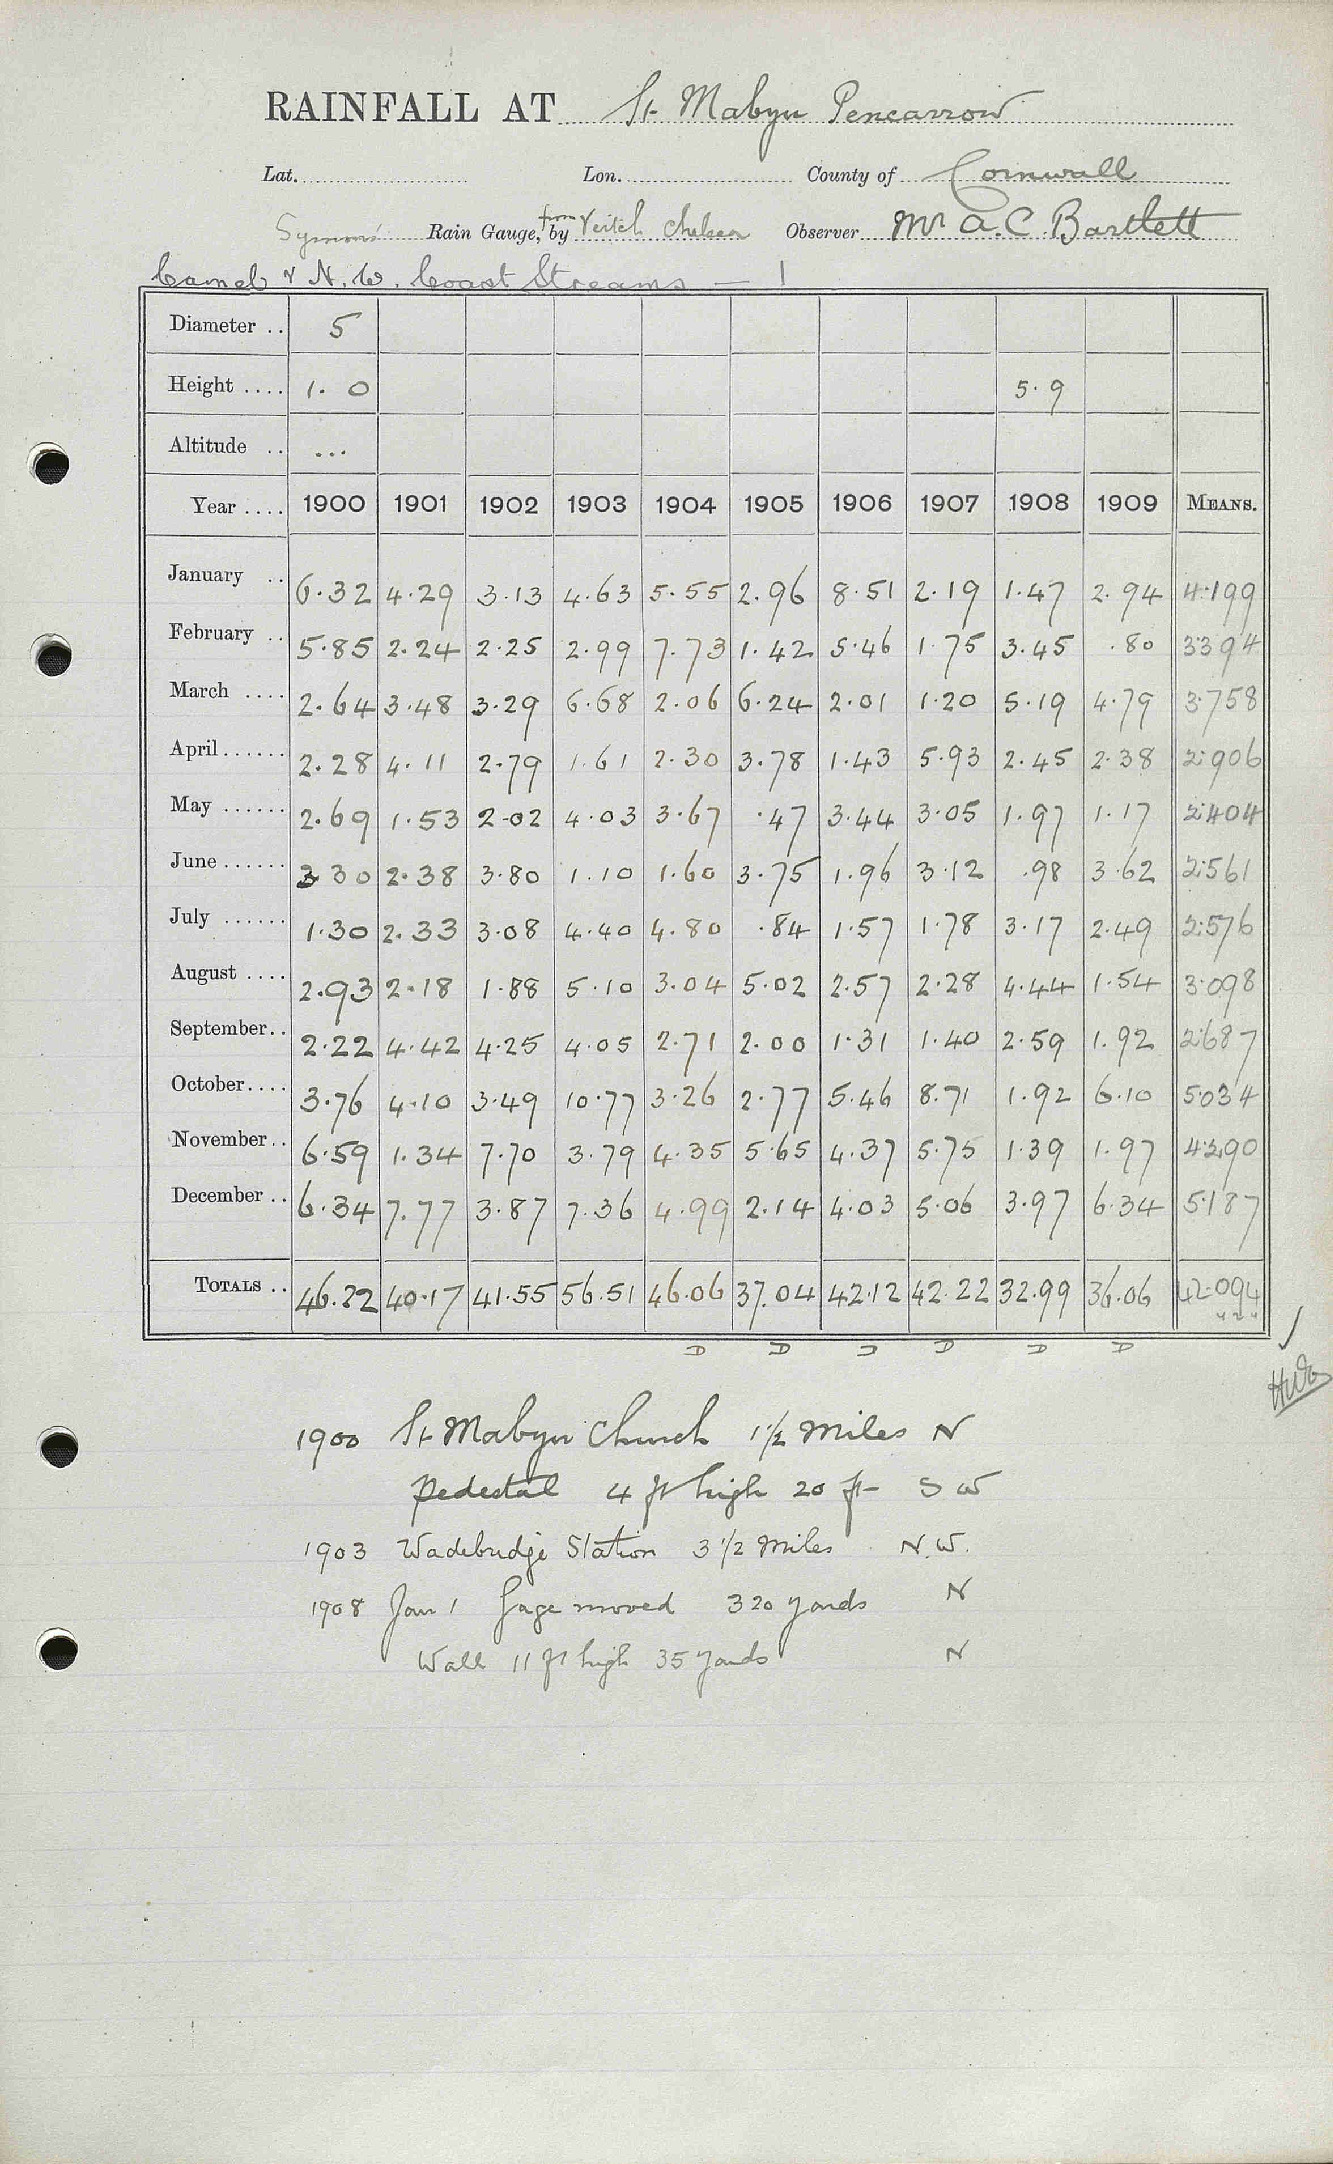 RAINFALL AT St Mabyn Pencarrow
Lat. Lon. County of Cornwall
Symons' Rain Gauge, from by Veitch Chelsea Observer Mr A. C. Bartlett
Camel & N. W. Coast Streams — 1
Diameter .. 5
Height .... 1. 0 5. 9
Altitude .. ...
Year .... 1900 1901 1902 1903 1904 1905 1906 1907 1908 1909 MEANS.
January .. 6.32 4.29 3.13 4.63 5.55 2.96 8.51 2.19 1.47 2.94 4.199
February .. 5.85 2.24 2.25 2.99 7.73 1.42 5.46 1.75 3.45 .80 3.394
March .... 2.64 3.48 3.29 6.68 2.06 6.24 2.01 1.20 5.19 4.79 3.758
April ...... 2.28 4.11 2.79 1.61 2.30 3.78 1.43 5.93 2.45 2.38 2.906
May ...... 2.69 1.53 2.02 4.03 3.67 .47 3.44 3.05 1.97 1.17 2.404
June ...... 3.30 2.38 3.80 1.10 1.60 3.75 1.96 3.12 .98 3.62 2.561
July ...... 1.30 2.33 3.08 4.40 4.80 .84 1.57 1.78 3.17 2.49 2.576
August .... 2.93 2.18 1.88 5.10 3.04 5.02 2.57 2.28 4.44 1.54 3.098
September.. 2.22 4.42 4.25 4.05 2.71 2.00 1.31 1.40 2.59 1.92 2.687
October.... 3.76 4.10 3.49 10.77 3.26 2.77 5.46 8.71 1.92 6.10 5.034
November .. 6.59 1.34 7.70 3.79 4.35 5.65 4.37 5.75 1.39 1.97 4.290
December .. 6.34 7.77 3.87 7.36 4.99 2.14 4.03 5.06 3.97 6.34 5.187
TOTALS .. 46.22 40.17 41.55 56.51 46.06 37.04 42.12 42.22 32.99 36.06 42.094
D D D D D D
1900 St Mabyn Church 1½ Miles N
Pedestal 4 ft high 20 ft S W
1903 Wadebridge Station 3½ Miles N. W.
1908 Jan 1 Gage moved 320 yards N
Wall 11 ft high 35 yards N